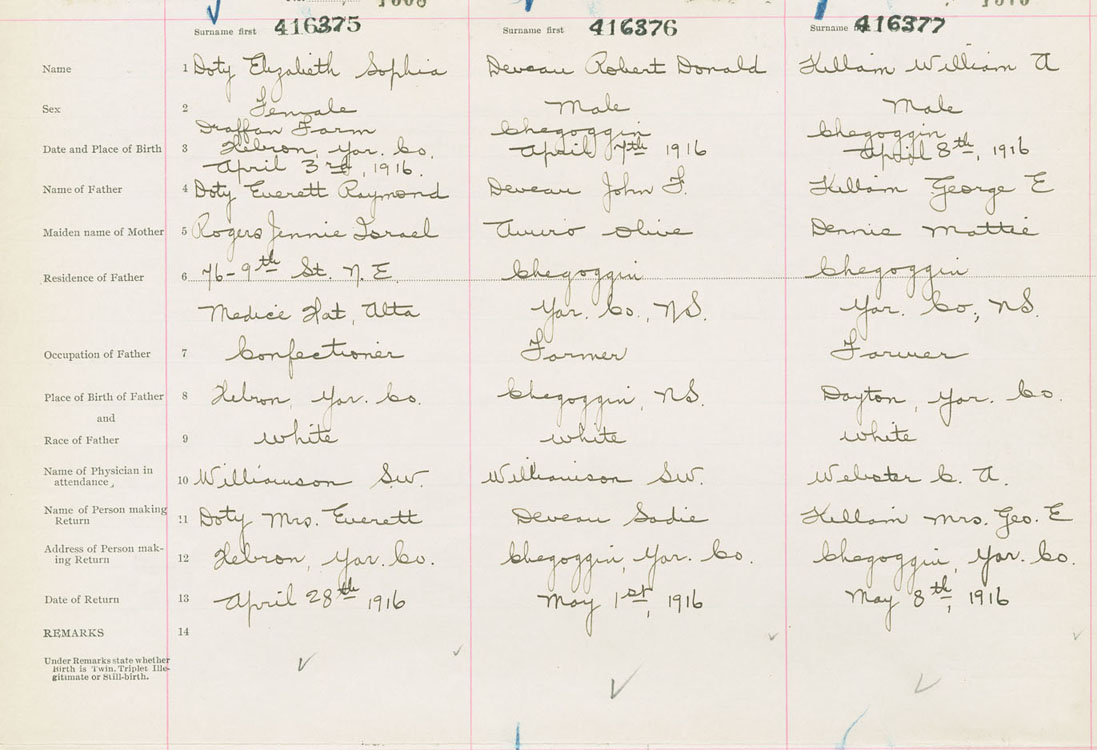 Surname first 416375 Surname first 416376 Surname first 416377
Name 1 Doty Elizabeth Sophia Deveau Robert Donald Killam William A
Sex 2 Female Male Male
Draffan Farm Chegoggin Chegoggin
Date and Place of Birth 3 Hebron, Yar. Co. April 7th 1916 April 8th, 1916
April 3rd, 1916.
Name of Father 4 Doty Everett Raymond Deveau John F. Killam George E
Maiden name of Mother 5 Rogers Jennie Israel Olive Dennis Mattie
Residence of Father 6 76-9th St. N. E. Chegoggin Chegoggin
Medice Hat, Alta Yar. Co., N.S. Yar. Co., N.S.
Occupation of Father 7 Confectioner Farmer Farmer
Place of Birth of Father 8 Hebron, Yar. Co. Chegoggin, N.S. Dayton, Yar. Co.
and
Race of Father 9 white white white
Name of Physician in
attendance, 10 Williamson S.W. Williamson S.W. Webster C. A.
Name of Person making
Return 11 Doty Mrs. Everett Deveau Sadie Killam Mrs. Geo. E
Address of Person mak-
ing Return 12 Hebron, Yar. Co. Chegoggin, Yar. Co. Chegoggin, Yar. Co.
Date of Return 13 April 28th 1916 May 1st, 1916 May 8th, 1916
REMARKS 14
Under Remarks state whether
Birth is Twin, Triplet Ille-
gitimate or Still-birth.